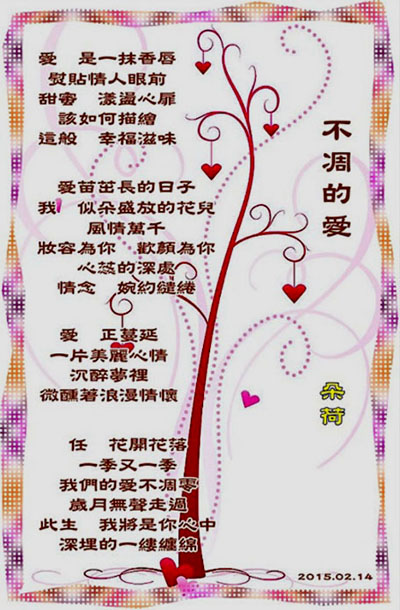 不凋的愛
愛　是一抹香唇
熨貼情人眼前
甜蜜　漾盪心扉
該如何描繪
這般　幸福滋味
愛苗茁長的日子
我　似朵盛放的花兒
風情萬千
妝容為你　歡顏為你
心蕊的深處
情念　婉約繾綣
愛　正蔓延
一片美麗心情
沉醉夢裡
微醺著浪漫情懷
任　花開花落
一季又一季
我們的愛不凋零
歲月無聲走過
此生　我將是你心中
深埋的一縷纏綿
朵荷
2015.02.14